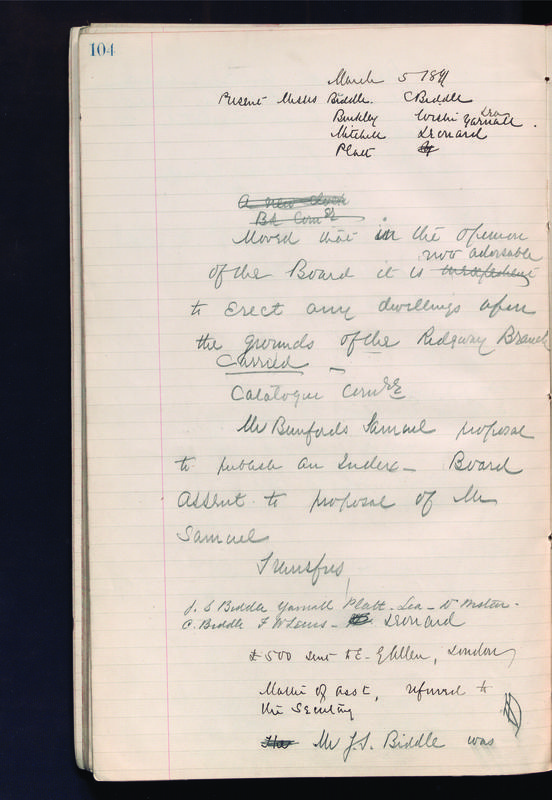 104
March 5 1891
Present Messrs Biddle. C Biddle
Lea
Binkley Wistar Yarnall.
Mitchell Leonard
Platt
A new Clock
Bk Comee
Moved that in the opinion
not advisable
of the Board it is inexpedient
to Erect any dwellings upon
the grounds of the Ridgway Branch
Carried –
Catalogue Comee
Mr Bunfords Samuel proposal
to publish an Index – Board
assent to proposal of Mr
Samuel
Transfers
J. S Biddle Yarnall Platt – Lea – Wistar –
C. Biddle F W Lewis – Leonard
£500 sent to E. G Allen, London
Matter of asst, referred to
the Secretary
Mr J. S. Biddle was